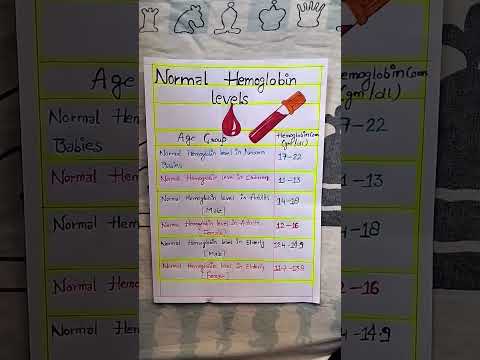 Normal Hemoglobin
levels
Age Group Hemoglobin(con
(gm/dl)
Normal Hemoglobin level in Newborn 17-22
Babies
Normal Hemoglobin level in Children 11-13
Normal Hemoglobin level in Adults 14-18
(Male)
Normal Hemoglobin level in Adults 12-16
(Female)
Normal Hemoglobin level in Elderly 12.4-14.9
(Male)
Normal Hemoglobin level in Elderly 11.7-13.8
(Female)
Age
Normal Hemo
Babies
Normal Hemo
Normal Hemo
Normal Hemo
Normal Hemo
emoglobin(con
(gm/dl)
7-22
1-13
4-18
2-16
4-14.9